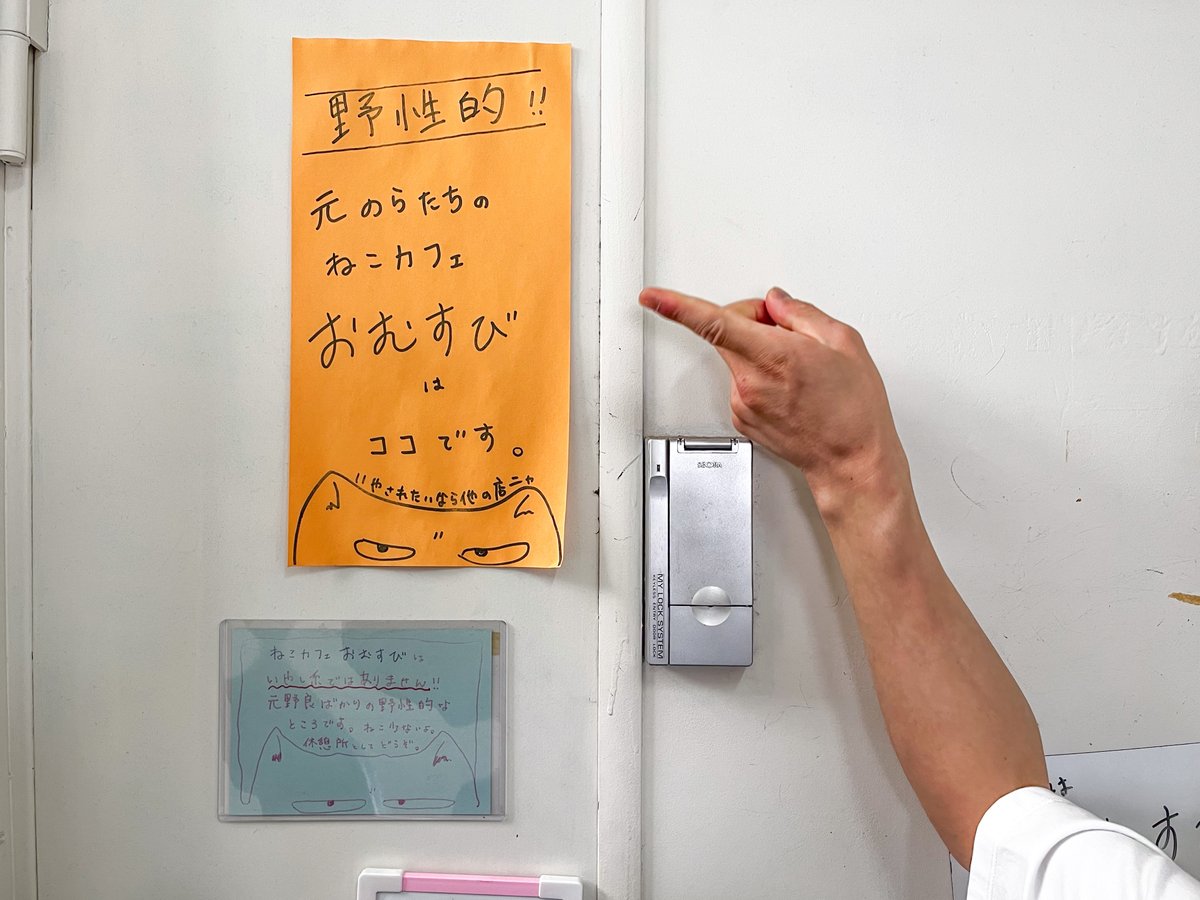 野性的!!
元のらたちの
ねこカフェ
おむすび
は
ココです。
いやされたいなら他の店ニャ
ねこカフェ おむすびは
いやし系ではありません!!
元野良ばかりの野性的な
ところです。ねこ少ないよ。
休憩所としてどうぞ。
MY LOCK SYSTEM
KEYLESS ENTRY DOOR LOCK
は
す